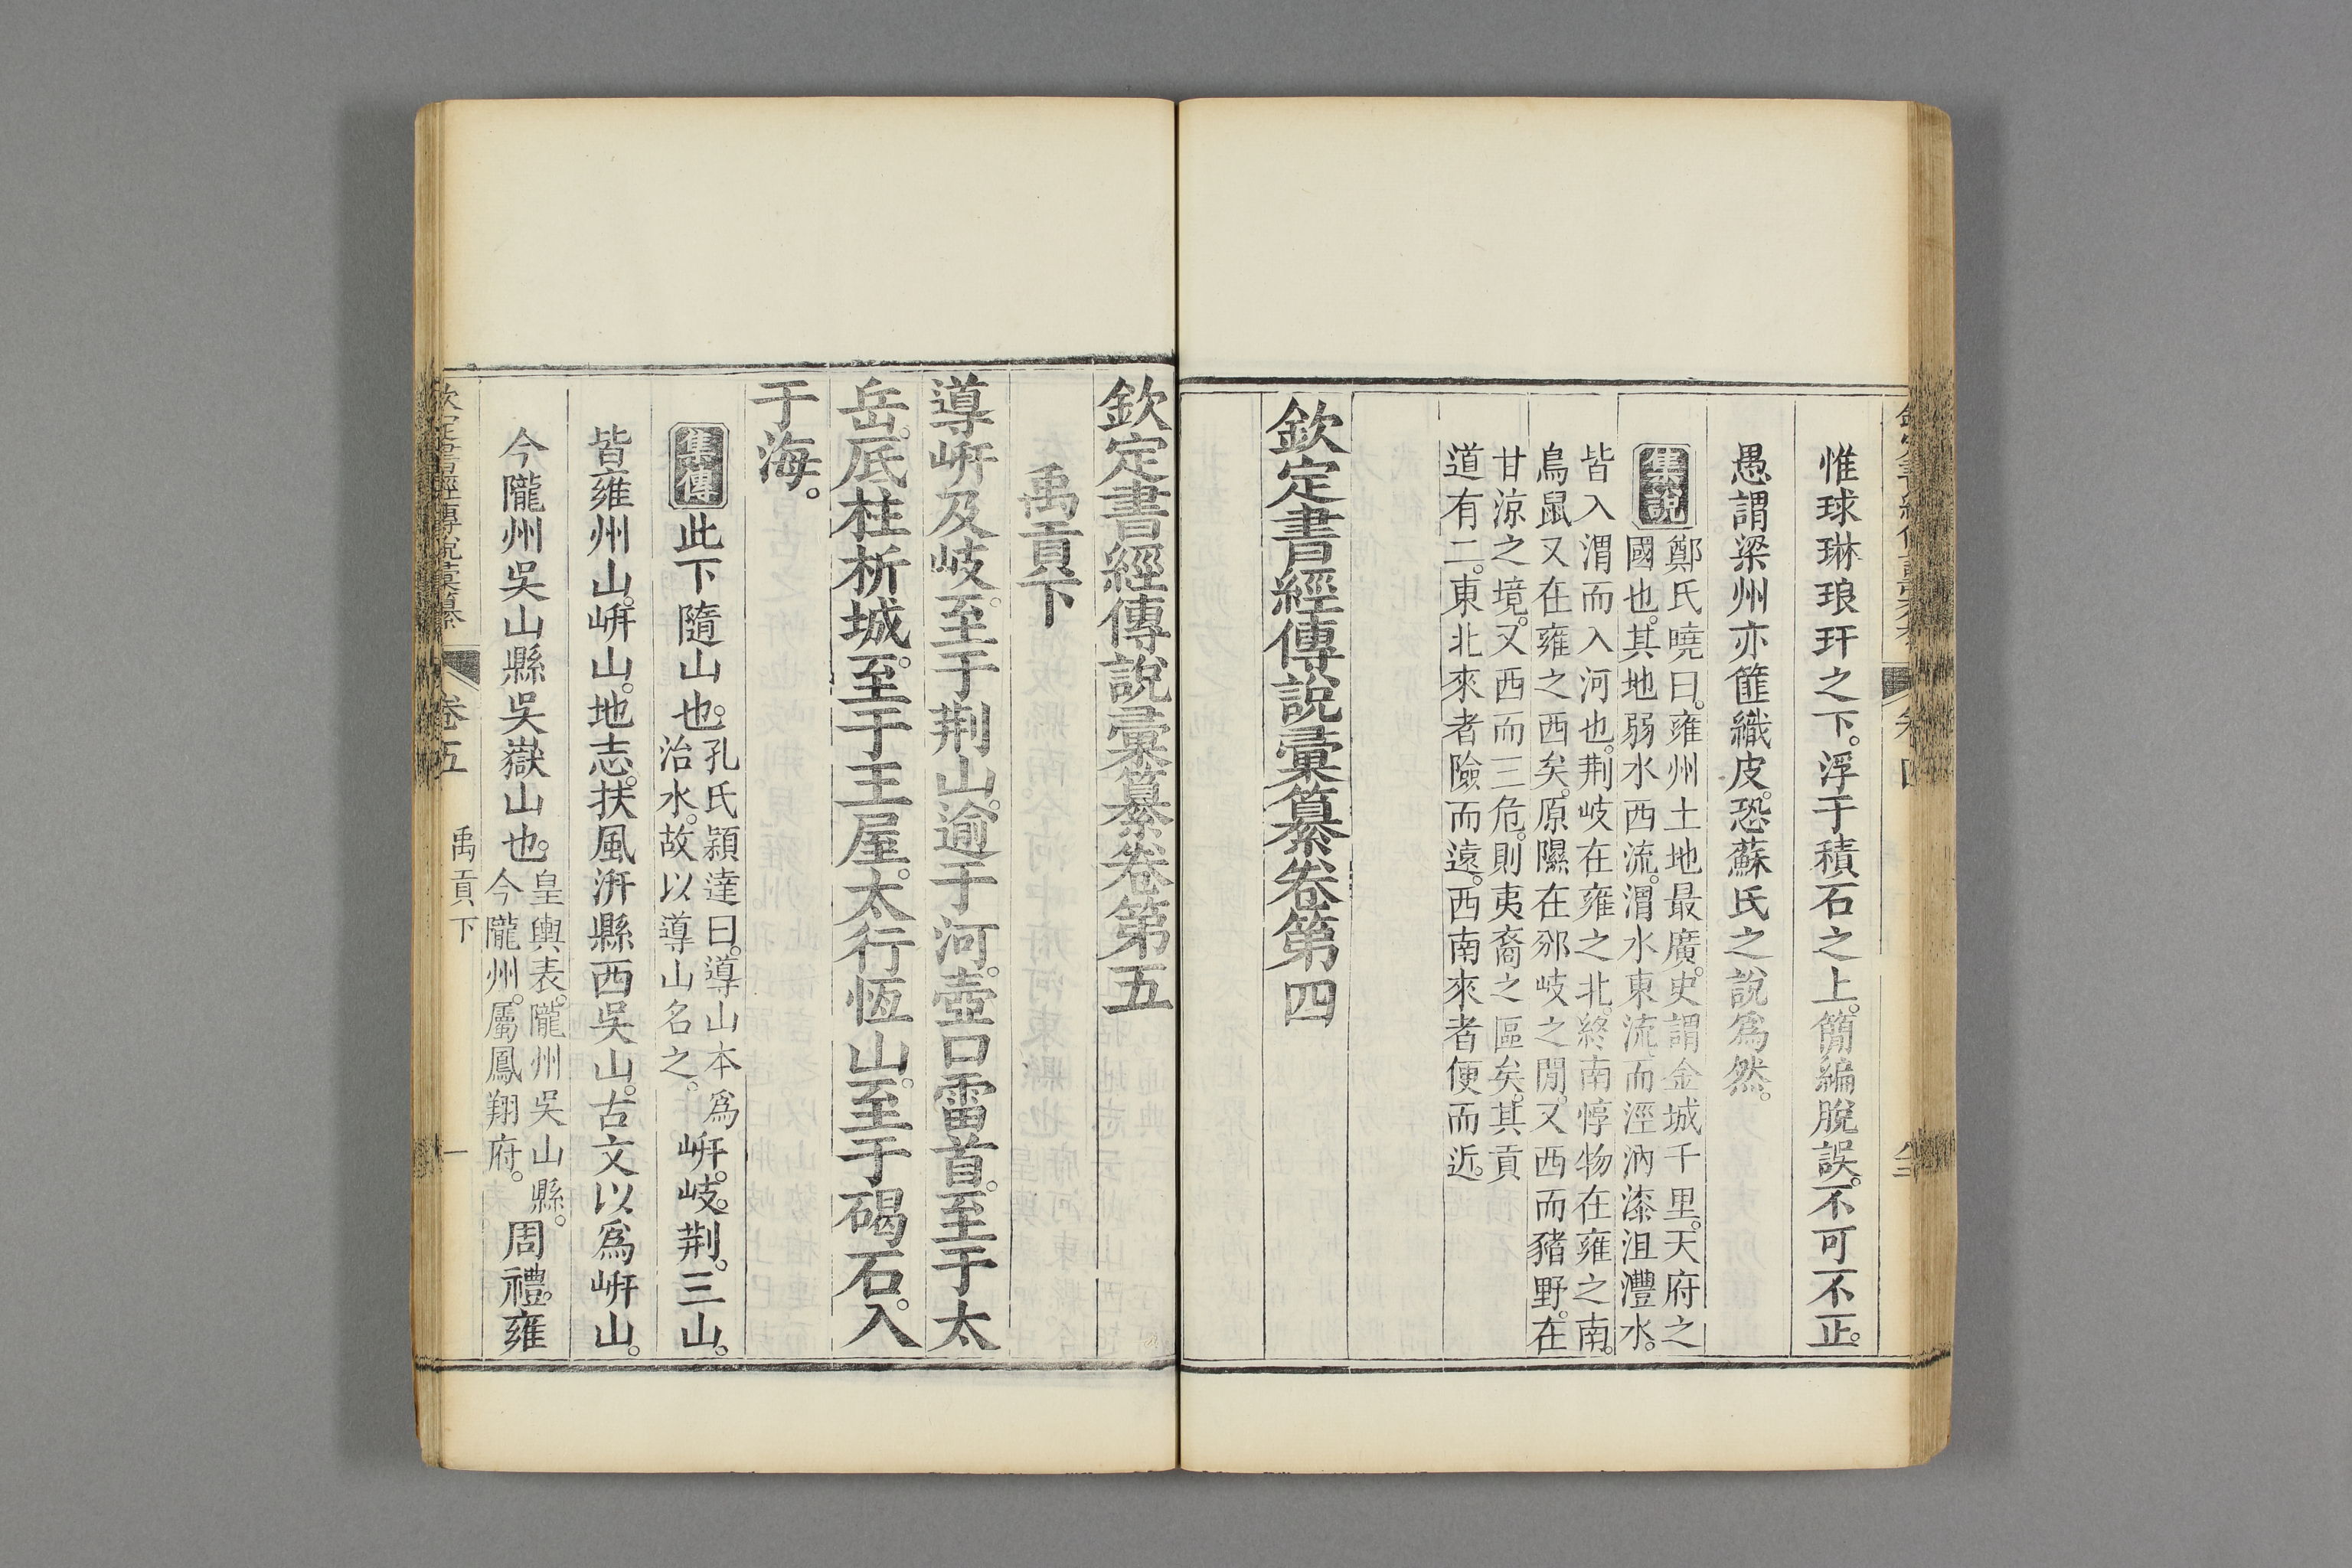 惟球琳琅玕之下。浮于積石之上。簡編脫誤。不可不正。
愚謂梁州亦篚織皮。恐蘇氏之說爲然。
集說
鄭氏曉曰。雍州土地最廣。史謂金城千里。天府之
國也。其地弱水西流。渭水東流。而涇汭漆沮灃水。
皆入渭而入河也。荆岐在雍之北。終南惇物在雍之南。
鳥鼠又在雍之西矣。原隰在邠岐之閒。又西而豬野。在
甘涼之境。又西而三危。則夷裔之區矣。其貢
道有二。東北來者險而遠。西南來者便而近。
欽定書經傳說彙纂卷第四
欽定書經傳說彙纂卷第五
禹貢下
導岍及岐。至于荆山。逾于河。壺口雷首。至于太
岳。底柱析城。至于王屋。太行恆山。至于碣石。入
于海。
集傳
此下隨山也。
孔氏穎達曰。導山本爲
治水。故以導山名之。
岍。岐。荆。三山。
皆雍州山。岍山。地志。扶風汧縣西吳山。古文以爲岍山。
今隴州吳山縣吳嶽山也。
皇輿表。隴州吳山縣。
今隴州。屬鳳翔府。
周禮。雍
欽定書經傳說彙纂
卷五
禹貢下
一